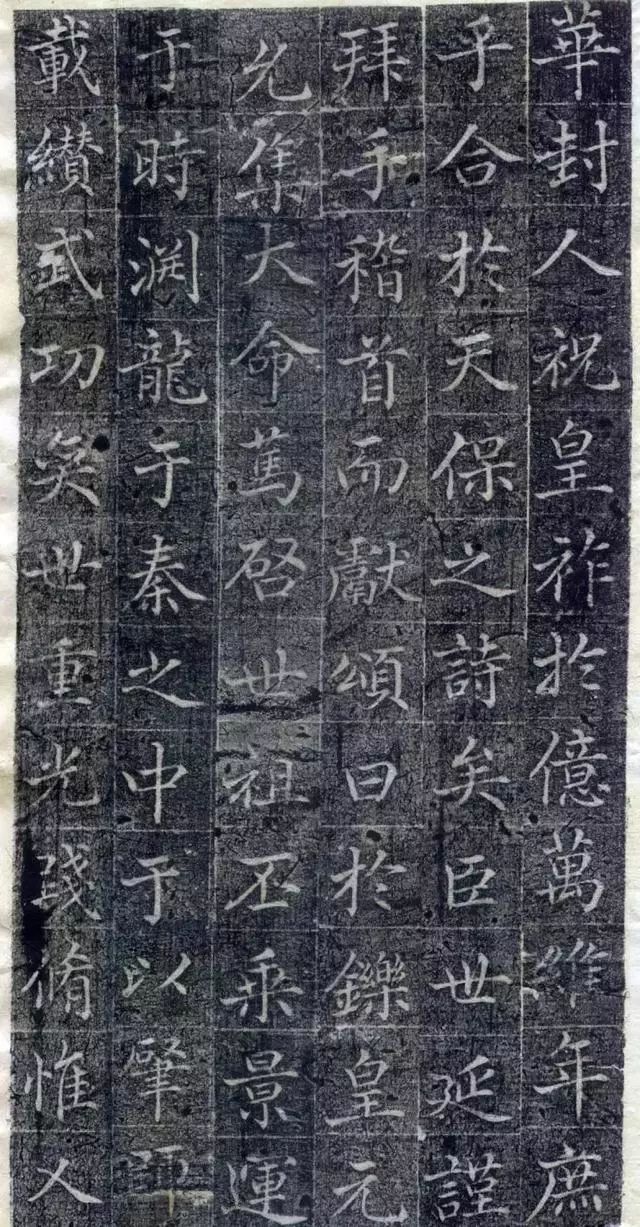 華封人祝皇祚於億萬維年庶
乎合於天保之詩矣臣世延謹
拜手稽首而獻頌曰於鑠皇元
允集大命篤啓世祖丕乘景運
于時淵龍于秦之中于以肇師
載纘武功奕世重光踐脩惟乂